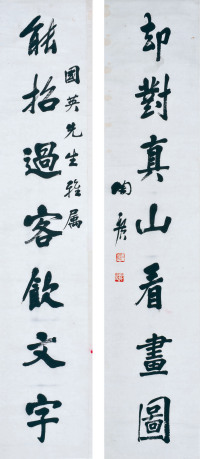 却對真山看畫圖
能招過客飲文字
國英先生雅屬